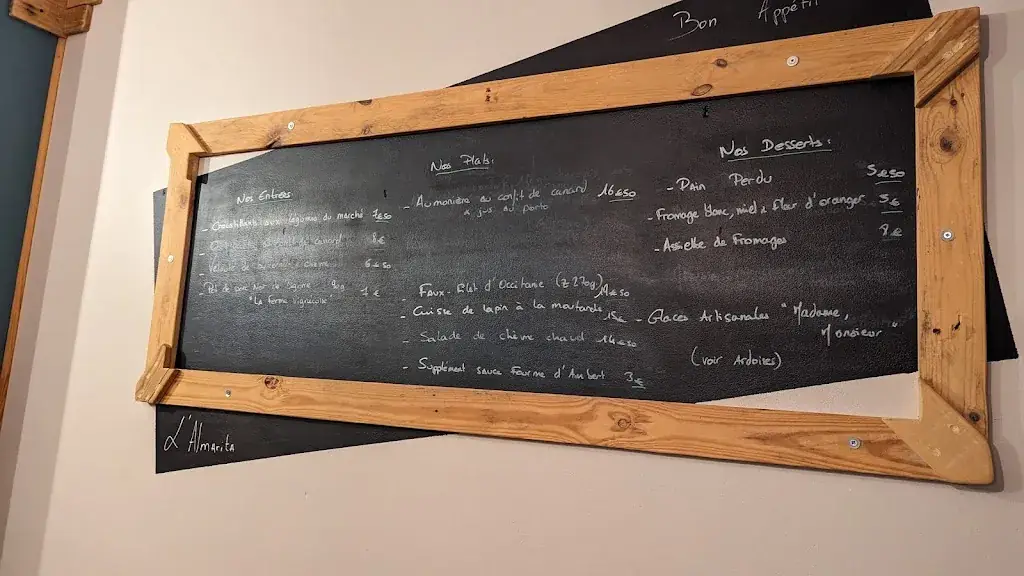 Bon Appétit
Nos Entrées
- Croustillants aux légumes du marché 7€50
canard 8€
6€50
- de porc noir de Bigorre 90g
"La ferme
Nos Plats:
- Aumonière au confit de canard 16€50
& jus au porto
- Faux-filet d'Occitanie (± 270g) 19€50
- Cuisse de lapin à la moutarde 15€
- Salade de chèvre chaud 14€50
- Supplément sauce fourme d'Ambert 3€
Nos Desserts:
- Pain Perdu 5€50
- Fromage blanc, miel & fleur d'oranger 5€
- Assiette de fromages 8€
- Glaces Artisanales "Madame,
Monsieur"
(voir Ardoises)
L'Almarita